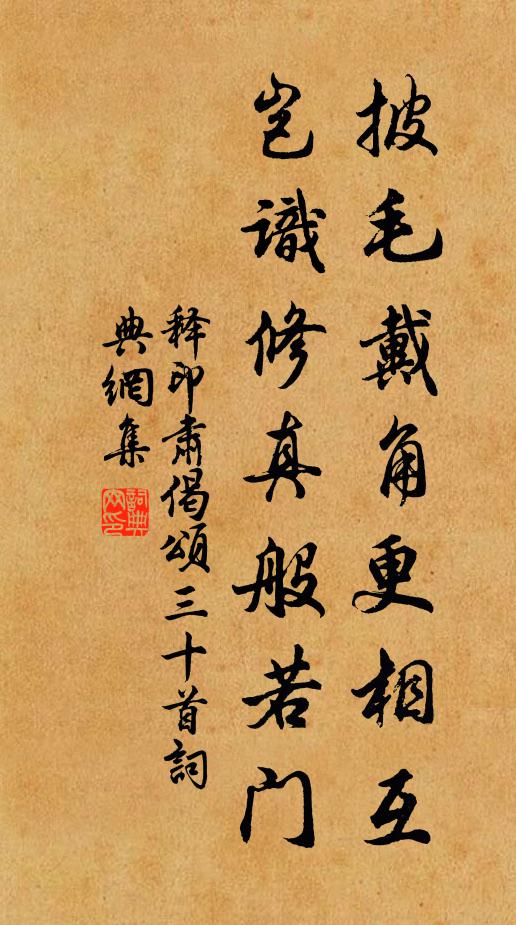 披毛戴角更相互
岂識修真般若门
释印肃偈頌三十首詞
典網集
詞典網印